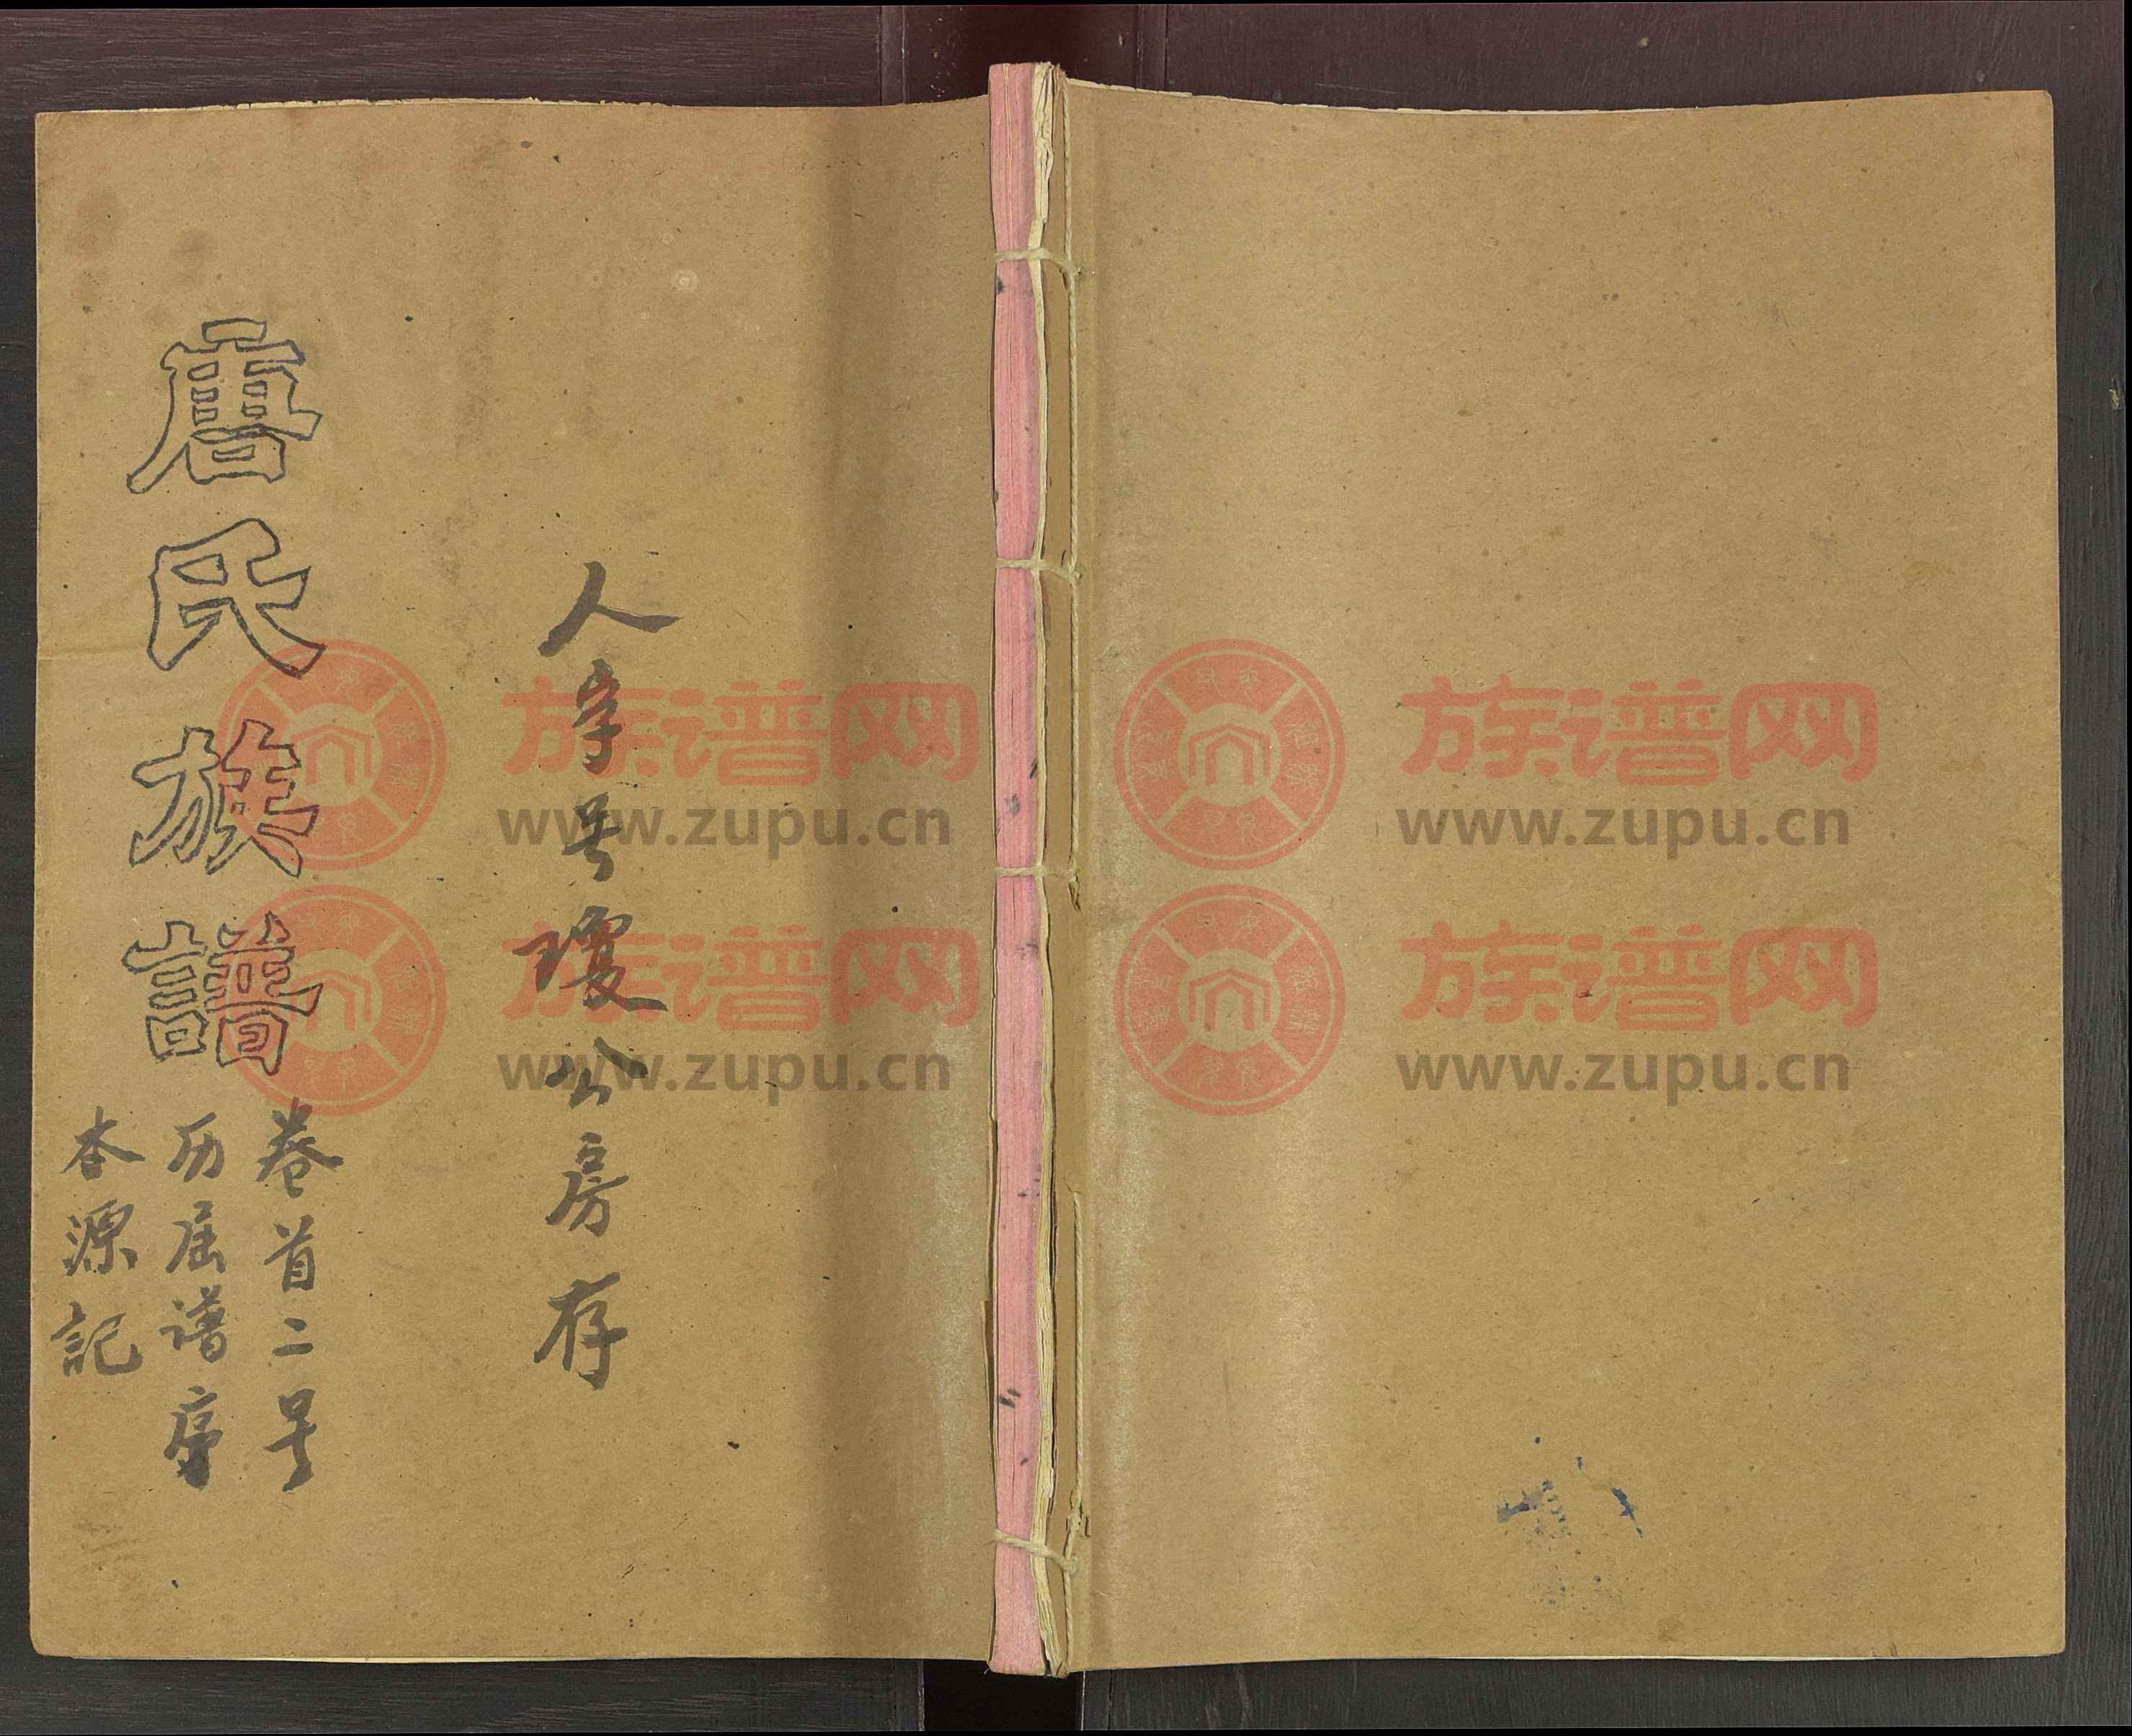 人字号瓊公房存
唐氏族譜
卷首二号
历届谱序
本源記
族谱网
www.zupu.cn
族谱网
www.zupu.cn
族谱网
www.zupu.cn
族谱网
www.zupu.cn